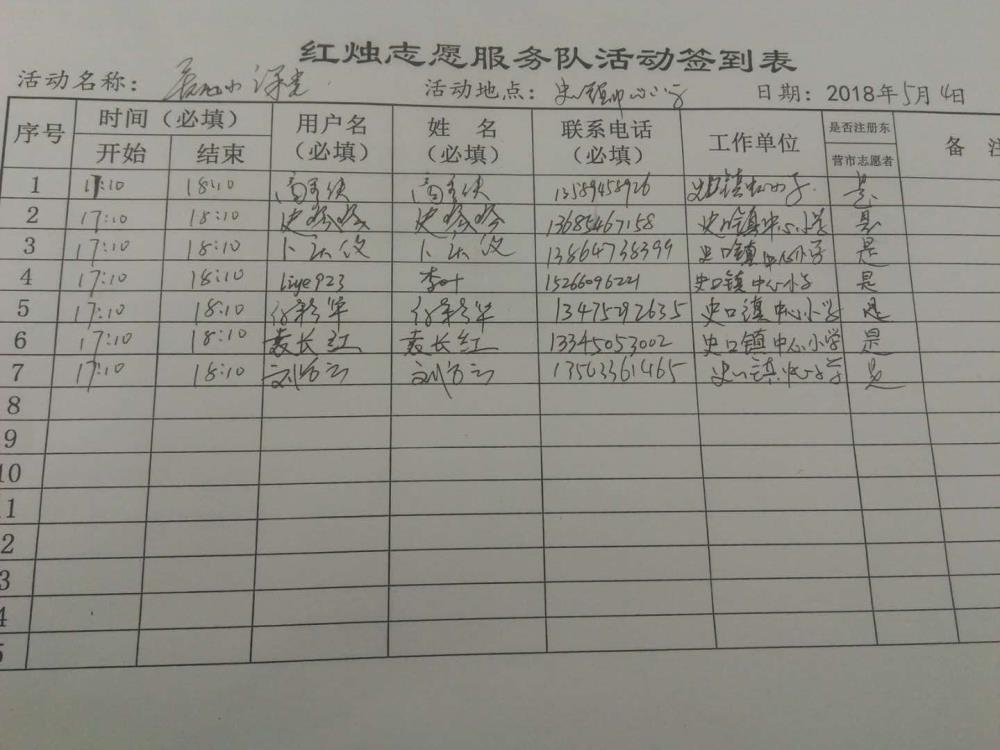 红烛志愿服务队活动签到表
活动名称： 活动地点：史口镇中心小学 日期：2018年5月4日
序号 时间（必填） 用户名（必填） 姓 名（必填） 联系电话（必填） 工作单位 是否注册东营市志愿者 备 注
开始 结束
1 17:10 18:10 13589458926 史口镇中心小学 是
2 17:10 18:10 13685467158 史口镇中心小学 是
3 17:10 18:10 13864738399 史口镇中心小学 是
4 17:10 18:10 liye923 李叶 15266096221 史口镇中心小学 是
5 17:10 18:10 13475292635 史口镇中心小学 是
6 17:10 18:10 袁长红 袁长红 13345053002 史口镇中心小学 是
7 17:10 18:10 13563361465 史口镇中心小学 是
8
9
10
1
2
3
4
5